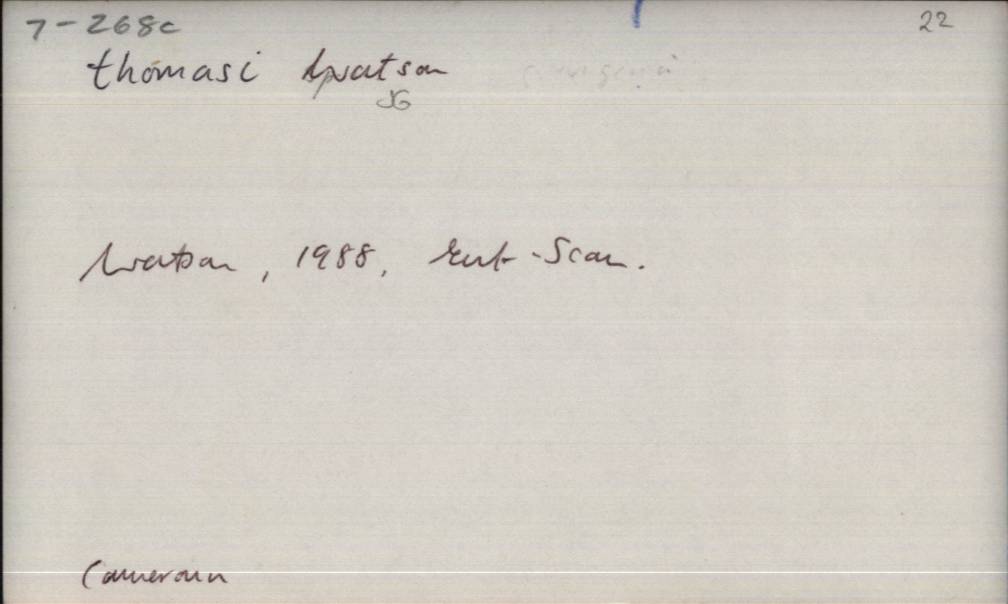 7-268c
22
thomasi Watson
JG
Watson, 1988, Ent. Scan.
Cameroun